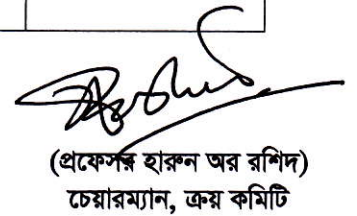 (প্রফেসর হারুন অর রশিদ)
চেয়ারম্যান, ক্রয় কমিটি